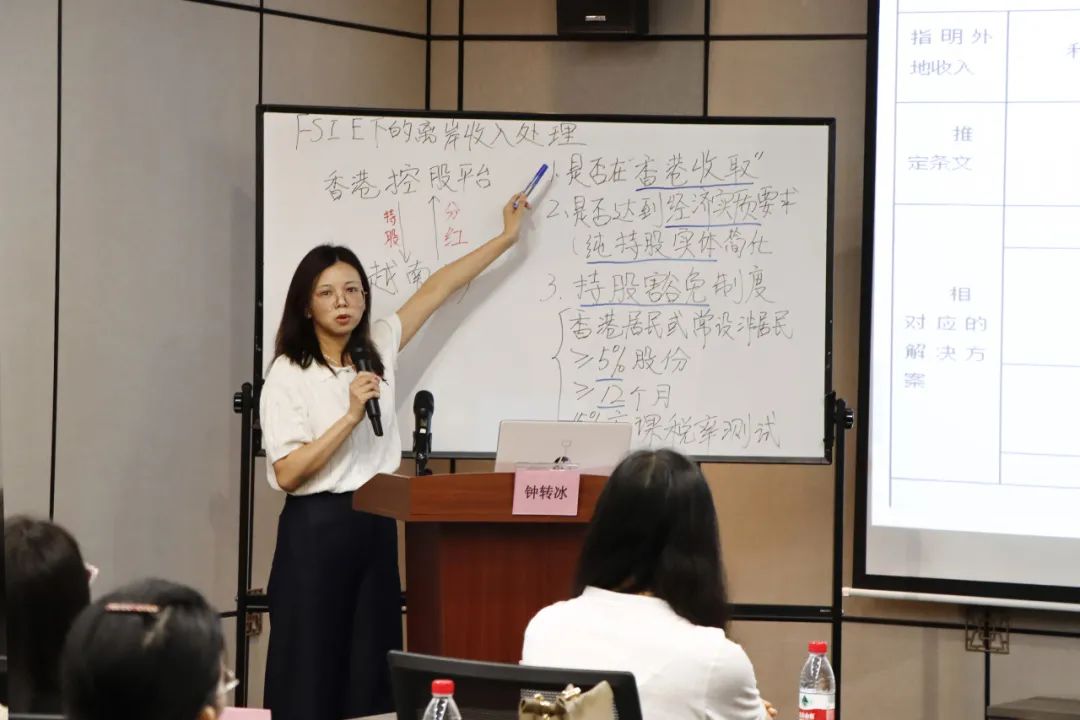 FSIE下的离岸收入处理
香港控股平台
持股
分红
越南
1.是否在"香港收取"
2、是否达到经济实质要求
(纯持股实体简化
3.持股豁免制度
香港居民或常设非居民
≥5%股份
≥12个月
15%
课税率测试
钟转冰
指明外
地收入
推
定条文
相
对应的
解决方
案